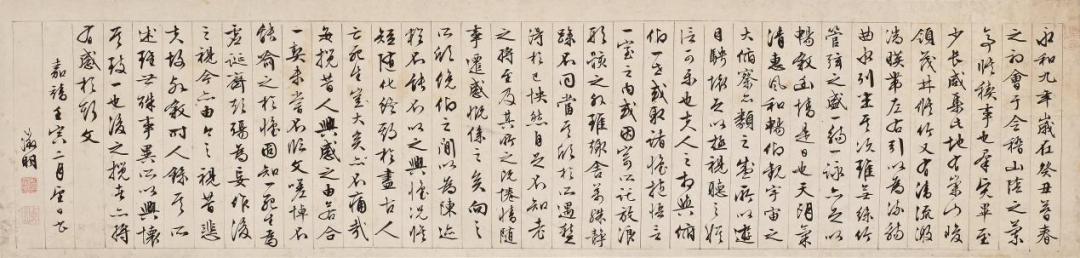 永和九年歲在癸丑暮春
之初會于會稽山陰之蘭
亭脩禊事也羣賢畢至
少長咸集此地有崇山峻
領茂林脩竹又有清流激
湍暎帶左右引以為流觴
曲水列坐其次雖無絲竹
管弦之盛一觴一詠亦足以
暢敘幽情是日也天朗氣
清惠風和暢仰觀宇宙之
大俯察品類之盛所以遊
目騁懷足以極視聽之娛
信可樂也夫人之相與俯
仰一世或取諸懷抱悟言
一室之內或因寄所託放浪
形骸之外雖趣舍萬殊靜
躁不同當其欣於所遇暫
得於己怏然自足不知老
之將至及其所之既惓情隨
事遷感慨係之矣向之
所欣俛仰之間以為陳迹
猶不能不以之興懷況脩
短隨化終期於盡古人
云死生亦大矣豈不痛哉
每攬昔人興感之由若合
一契未嘗不臨文嗟悼不
能喻之於懷固知一死生為
虛誕齊彭殤為妄作後
之視今亦由今之視昔悲
夫故列敘時人錄其所
述雖世殊事異所以興懷
其致一也後之攬者亦將
有感於斯文
嘉靖壬寅二月望日書
徵明